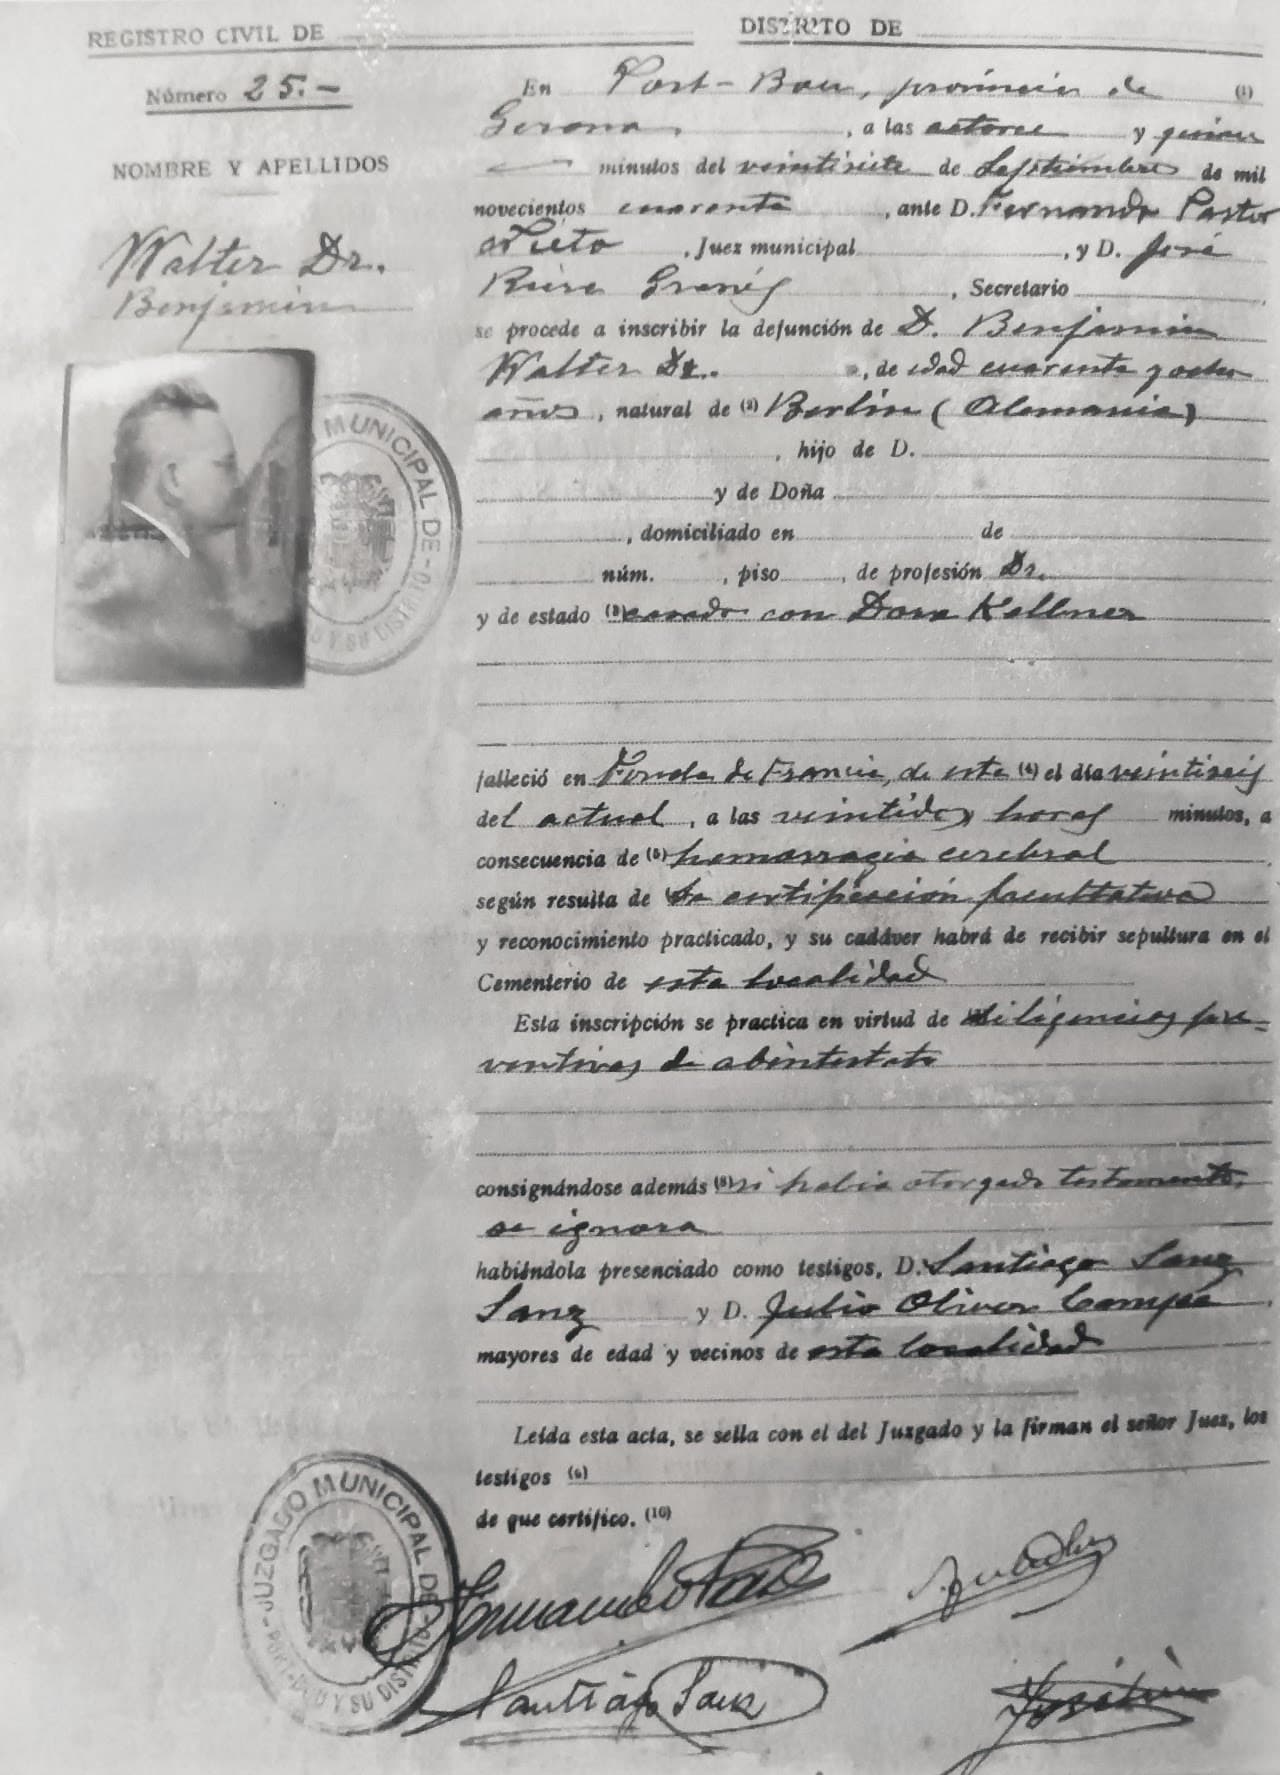 REGISTRO CIVIL DE
DISTRITO DE
Número 25.-
NOMBRE Y APELLIDOS
Walter Dr.
Benjamin
MUNICIPAL DE
Y SU DISTRITO
En Port-Bou, provincia de (1)
Gerona, , a las catorce y quince
minutos del veintisiete de Septiembre de mil
novecientos cuarenta , ante D. Fernando Pastor
Nieto , Juez municipal , y D. José
Riera Granés , Secretario
se procede a inscribir la defunción de D. Benjamin
Walter Dr. , de edad cuarenta y ocho
años , natural de (2) Berlin ( Alemania )
, hijo de D.
y de Doña
, domiciliado en de
núm. , piso , de profesión Dr.
y de estado (3) casado con Dora Kellner
falleció en Fonda de Francia, de esta (4) el día veintiseis
del actual , a las veintidos horas minutos, a
consecuencia de (5) hemorragia cerebral
según resulta de la certificación facultativa
y reconocimiento practicado, y su cadáver habrá de recibir sepultura en el
Cementerio de esta localidad
Esta inscripción se practica en virtud de diligencias pre-
ventivas de abintestato
consignándose además (8) si habia otorgado testamento,
se ignora
habiéndola presenciado como testigos, D. Santiago Sanz
Sanz y D. Julio Oliver Campá
mayores de edad y vecinos de esta localidad
Leída esta acta, se sella con el del Juzgado y la firman el señor Juez, los
testigos (6)
de que certifico. (10)
JUZGADO MUNICIPAL DE
PORT-BOU Y SU DISTRITO
Santiago Sanz